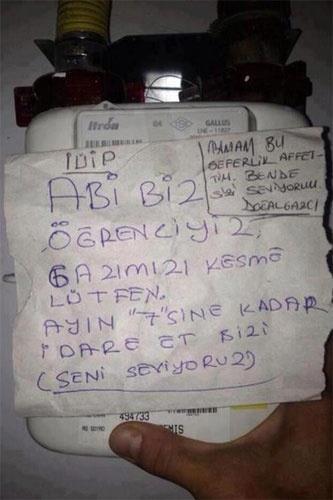 Itron G4 GALLUS
İDİP
TAMAM BU
SEFERLİK AFFET-
TİM. BENDE
SİZİ SEVİYORUM.
DOĞALGAZCI
ABİ BİZ
ÖĞRENCİYİZ,
GAZIMIZI KESME
LÜTFEN.
AYIN "7"SİNE KADAR
İDARE ET BİZİ
(SENİ SEVİYORUZ)
494733